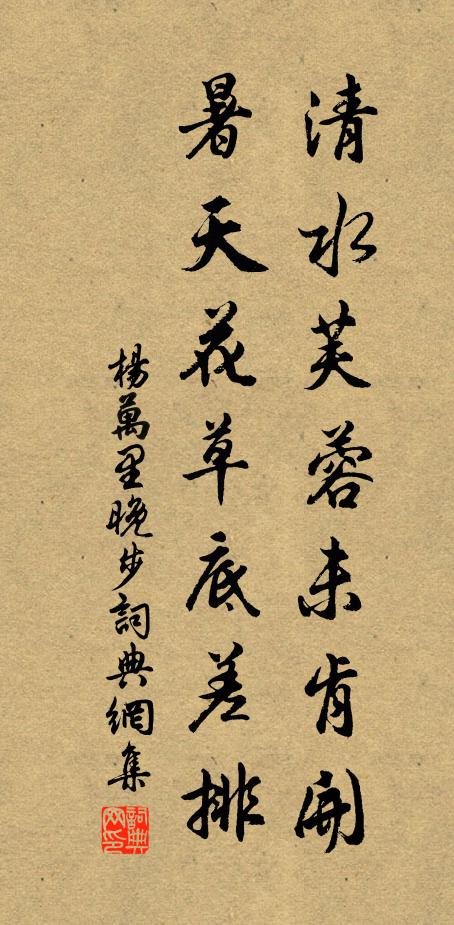 清水芙蓉未肯開
暑天花草底差排
楊萬里晚步詞典網集
詞典網印